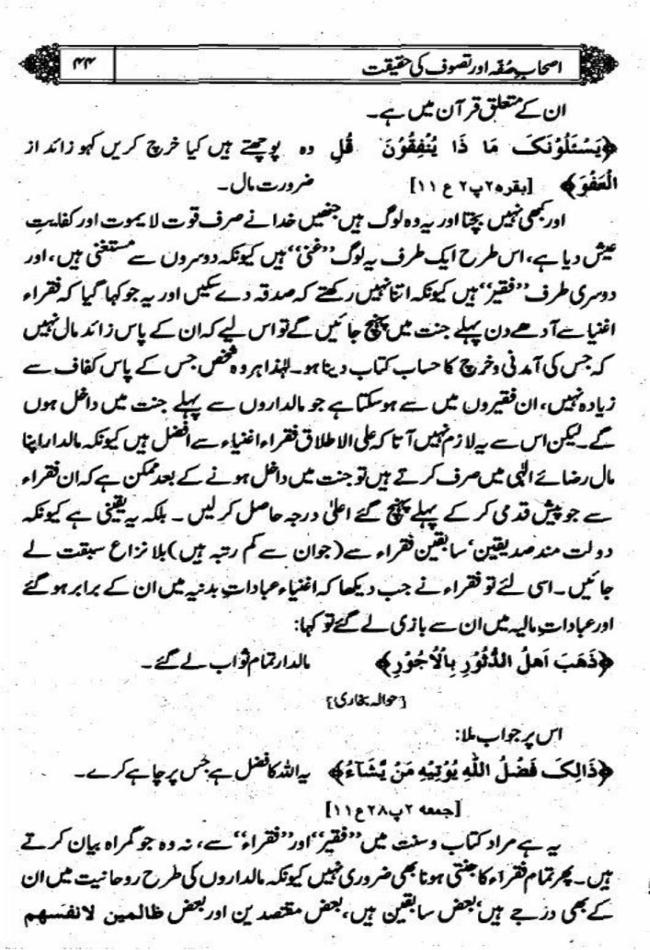 اصحاب صُفہ اور تصوف کی حقیقت ۴۴
ان کے متعلق قرآن میں ہے۔
﴿یَسْئَلُوْنَکَ مَا ذَا یُنْفِقُوْنَ قُلِ وہ پوچھتے ہیں کیا خرچ کریں کہو زائد از
الْعَفْوَ﴾ [بقرہ۲پ۲ ع۱۱] ضرورت مال۔
اور کبھی نہیں بچتا اور یہ وہ لوگ ہیں جنھیں خدا نے صرف قوت لا یموت اور کفایتِ
عیش دیا ہے، اس طرح ایک طرف یہ لوگ ’’غنی‘‘ ہیں کیونکہ دوسروں سے مستغنی ہیں، اور
دوسری طرف ’’فقیر‘‘ ہیں کیونکہ اتنا نہیں رکھتے کہ صدقہ دے سکیں اور یہ جو کہا گیا کہ فقراء
اغنیا سے آدھے دن پہلے جنت میں پہنچ جائیں گے تو اس لیے کہ ان کے پاس زائد مال نہیں
کہ جس کی آمدنی وخرچ کا حساب کتاب دینا ہو۔ لہٰذا ہر وہ شخص جس کے پاس کفاف سے
زیادہ نہیں، ان فقیروں میں سے ہو سکتا ہے جو مالداروں سے پہلے جنت میں داخل ہوں
گے۔ لیکن اس سے یہ لازم نہیں آتا کہ علی الاطلاق فقراء اغنیاء سے افضل ہیں کیونکہ مالدار اپنا
مال رضائے الٰہی میں صرف کرتے ہیں تو جنت میں داخل ہونے کے بعد ممکن ہے کہ ان فقراء
سے جو پیش قدمی کر کے پہلے پہنچ گئے اعلیٰ درجہ حاصل کر لیں۔ بلکہ یہ یقینی ہے کیونکہ
دولت مند صدیقین‘ سابقین فقراء سے (جو ان سے کم رتبہ ہیں) بلا نزاع سبقت لے
جائیں۔ اسی لئے تو فقراء نے جب دیکھا کہ اغنیاء عباداتِ بدنیہ میں ان کے برابر ہو گئے
اور عباداتِ مالیہ میں ان سے بازی لے گئے تو کہا:
﴿ذَهَبَ اَهلُ الدُّثُوْرِ بِالْاُجُوْرِ﴾ مالدار تمام ثواب لے گئے۔
[حوالہ بخاری]
اس پر جواب ملا:
﴿ذَالِکَ فَضْلُ اللّٰهِ یُوْتِیْهِ مَنْ یَّشَآءُ﴾ یہ اللہ کا فضل ہے جس پر چاہے کرے۔
[جمعہ ۲پ۲۸ع۱۱]
یہ ہے مراد کتاب وسنت میں ’’فقیر‘‘ اور ’’فقراء‘‘ سے، نہ وہ جو گمراہ بیان کرتے
ہیں۔ پھر تمام فقراء کا جنتی ہونا بھی ضروری نہیں کیونکہ مالداروں کی طرح روحانیت میں ان
کے بھی درجے ہیں‘ بعض سابقین ہیں، بعض مقتصدین اور بعض ظالمین لانفسهم